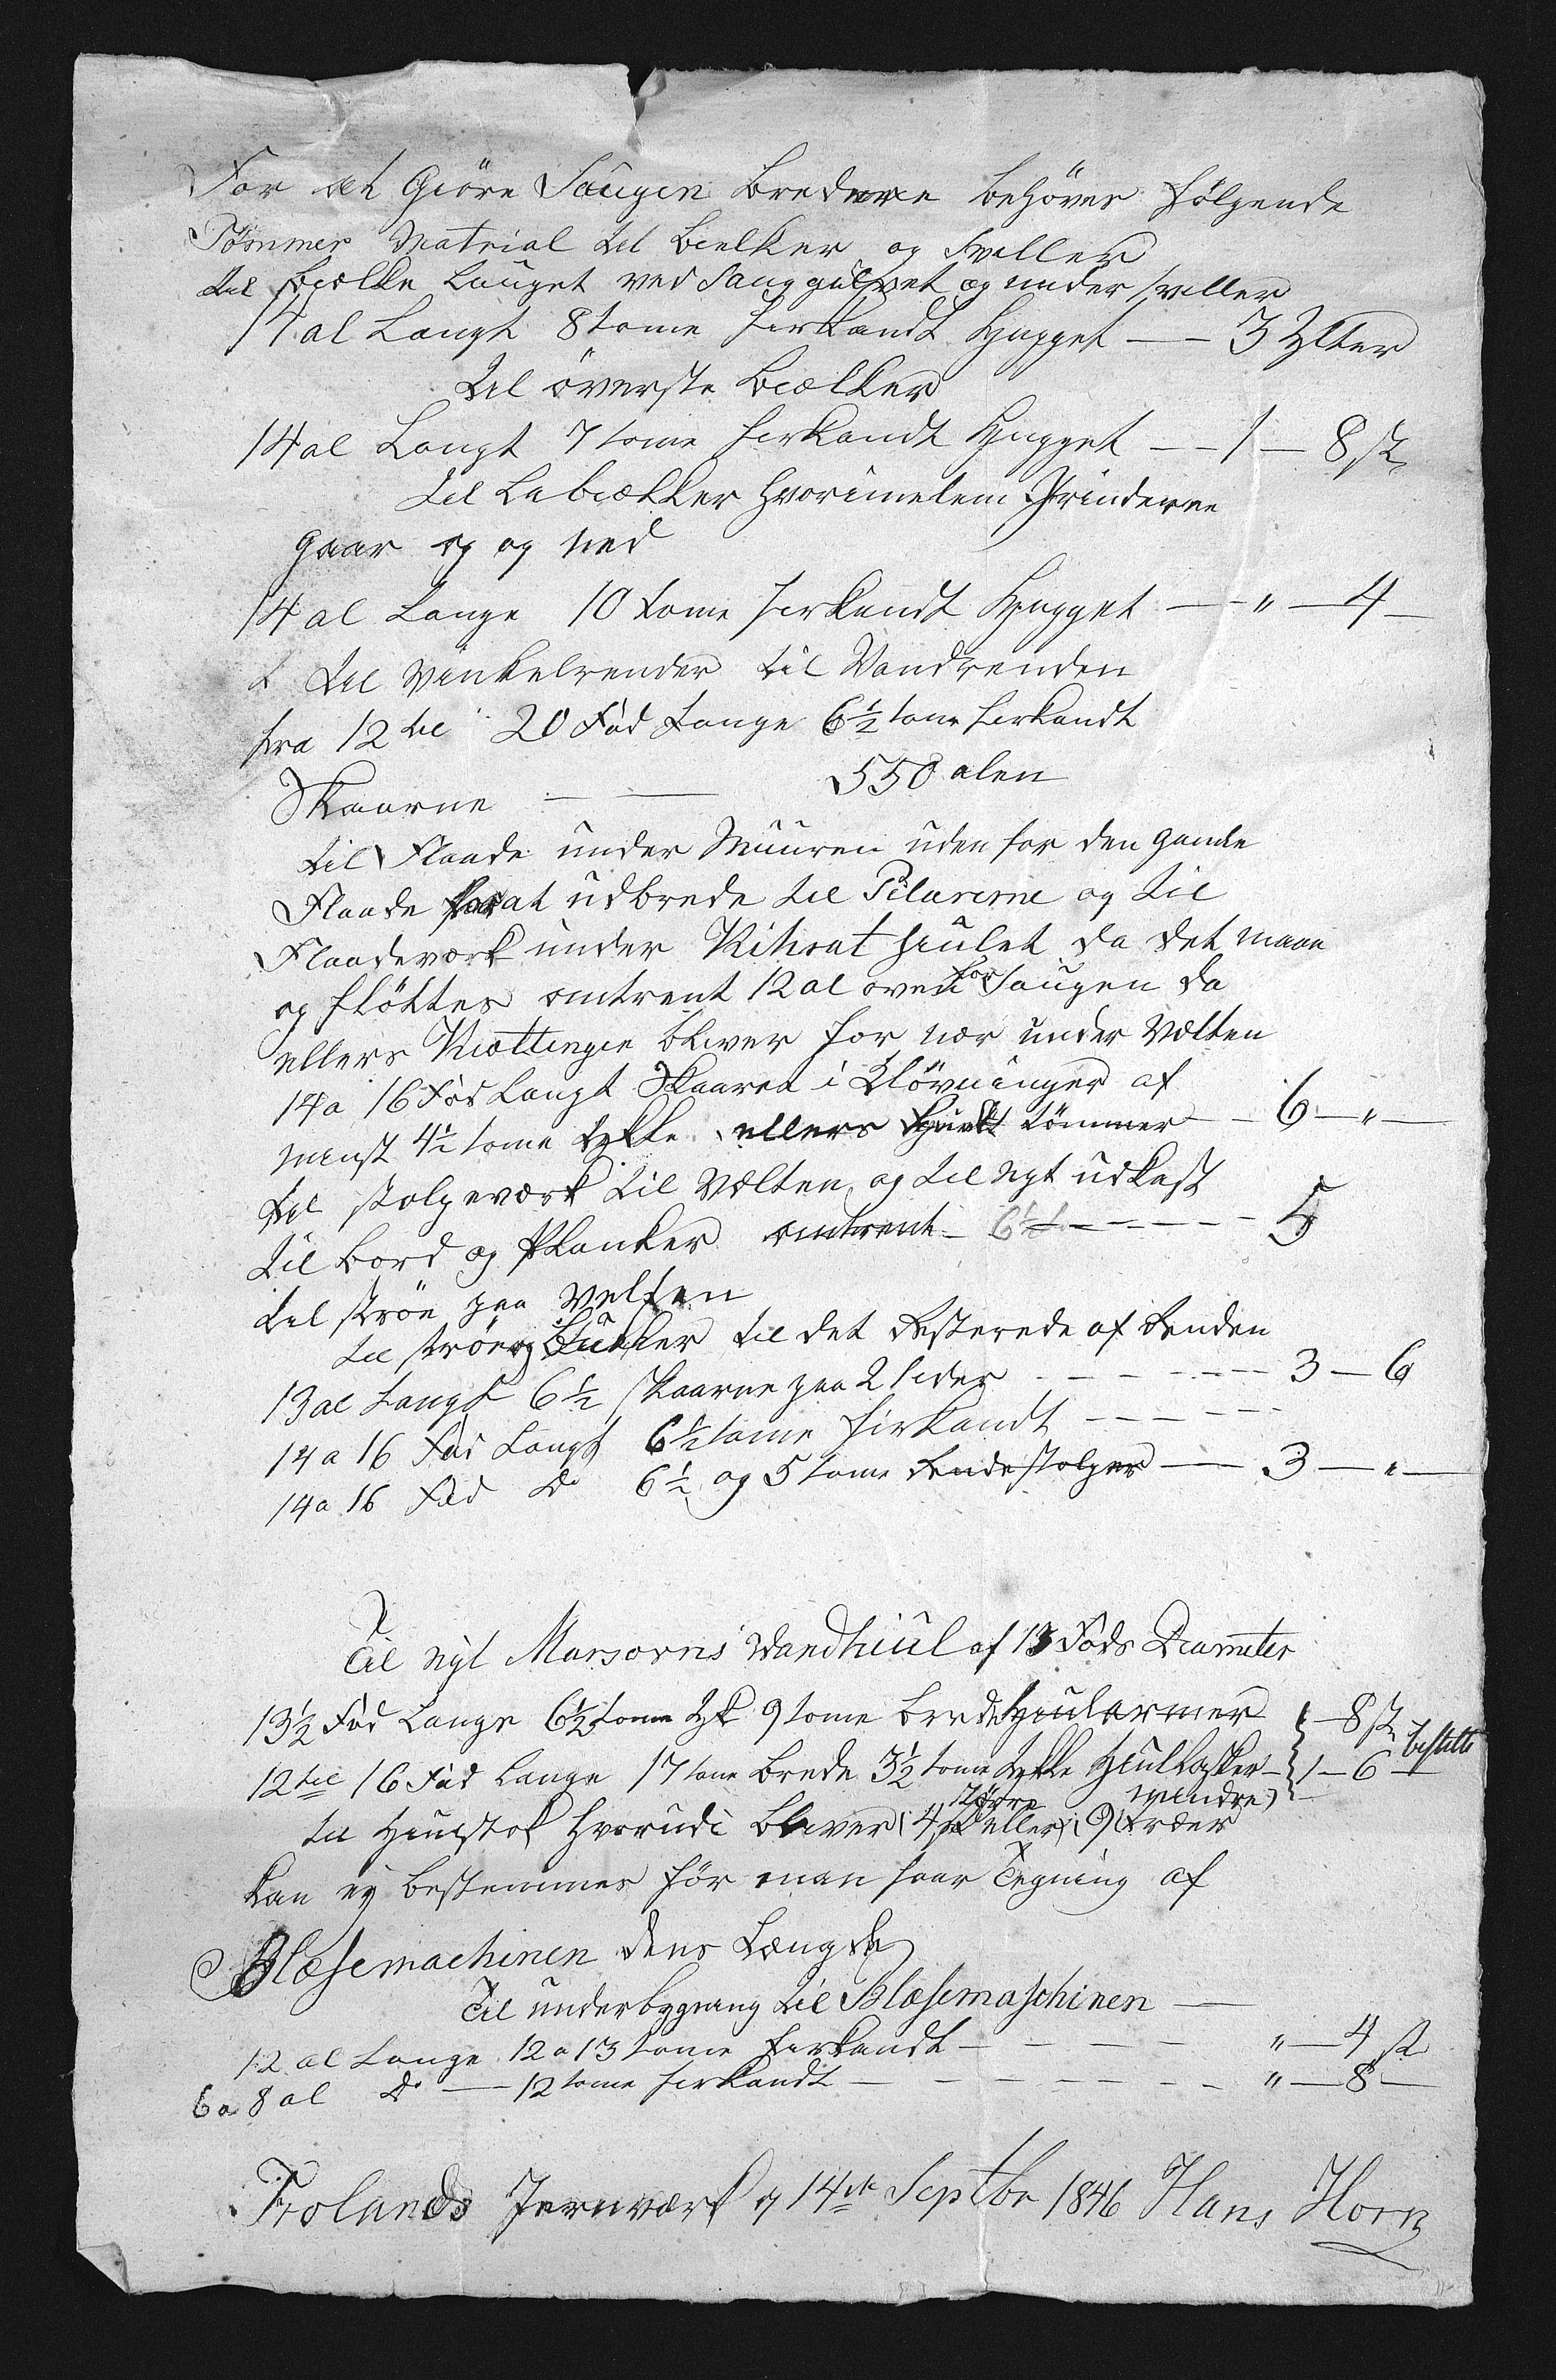 For at Giöre Saugen bredere behöves fölgende
Tömmer Matrial til bielker og Sviller
til bielke lauget ved Sauggulvet og under sviller
14 al Langt 8 tome firkandt Hugget — — 3 Ylter
til överste bielker
14 al Langt 7 tome firkandt Hugget — — 1 — 8 st
til Labielker hvorimelem Grinderne
gaar op og ned
14 al Lange 10 tome firkandt Hugget — — " — 4 —
til vinkelrender til Vandrenden
fra 12 til 20 Fod Lange 6½ tome firkandt
Skaarne — — 550 alen
til Flaade under Muuren uden for den gamle
Flaade for at udbrede til Pilarerne og til
Flaadeværk under Kihrat hiulet da det maae
og flöttes omtrent 12 al oven for Saugen da
ellers Kiættingen bliver for nær under Vælten
14 a 16 Fod Langt Skaaren i Klövninger af
minst 4½ tome tykke ellers tömmer — 6 — " —
til stolpeværk til Vælten og til nyt udkast
til bord og Planker omtrent 6½ — — — — — 5
til ströe paa Velten
til ströe og Stukker til det Resterede af Renden
13 al Langt 6½ skaarne paa 2 sider — — — — 3 — 6
14 a 16 Fod Langt 6½ tome firkandt — — — — —
14 a 16 Fod Do 6½ og 5 tome Rendestolper — 3 — " —
Til nyt Masovns Vandhiul af 13 Fods Diameter
13½ Fod Lange 6½ tome tyk 9 tome brede Hiularmer — 8 st
12 til 16 Fod Lange 17 tome brede 3½ tome tykke Hiulkasker — 1 — 6 — bestilte
til Hiulstok hvorudi bliver (4 större eller 9 mindre) træer
kan ej bestemmes för man faar Tegning af
Blæsemachinen dens Længde
Til underbygning til Blæsemaschinen —
12 al Lange 12 a 13 tome firkandt — — — — " — 4 st
6 a 8 al Do — 12 tome firkandt — — — — — " — 8 —
Frolands Jernværk d 14de Septbr 1846 Hans Horn